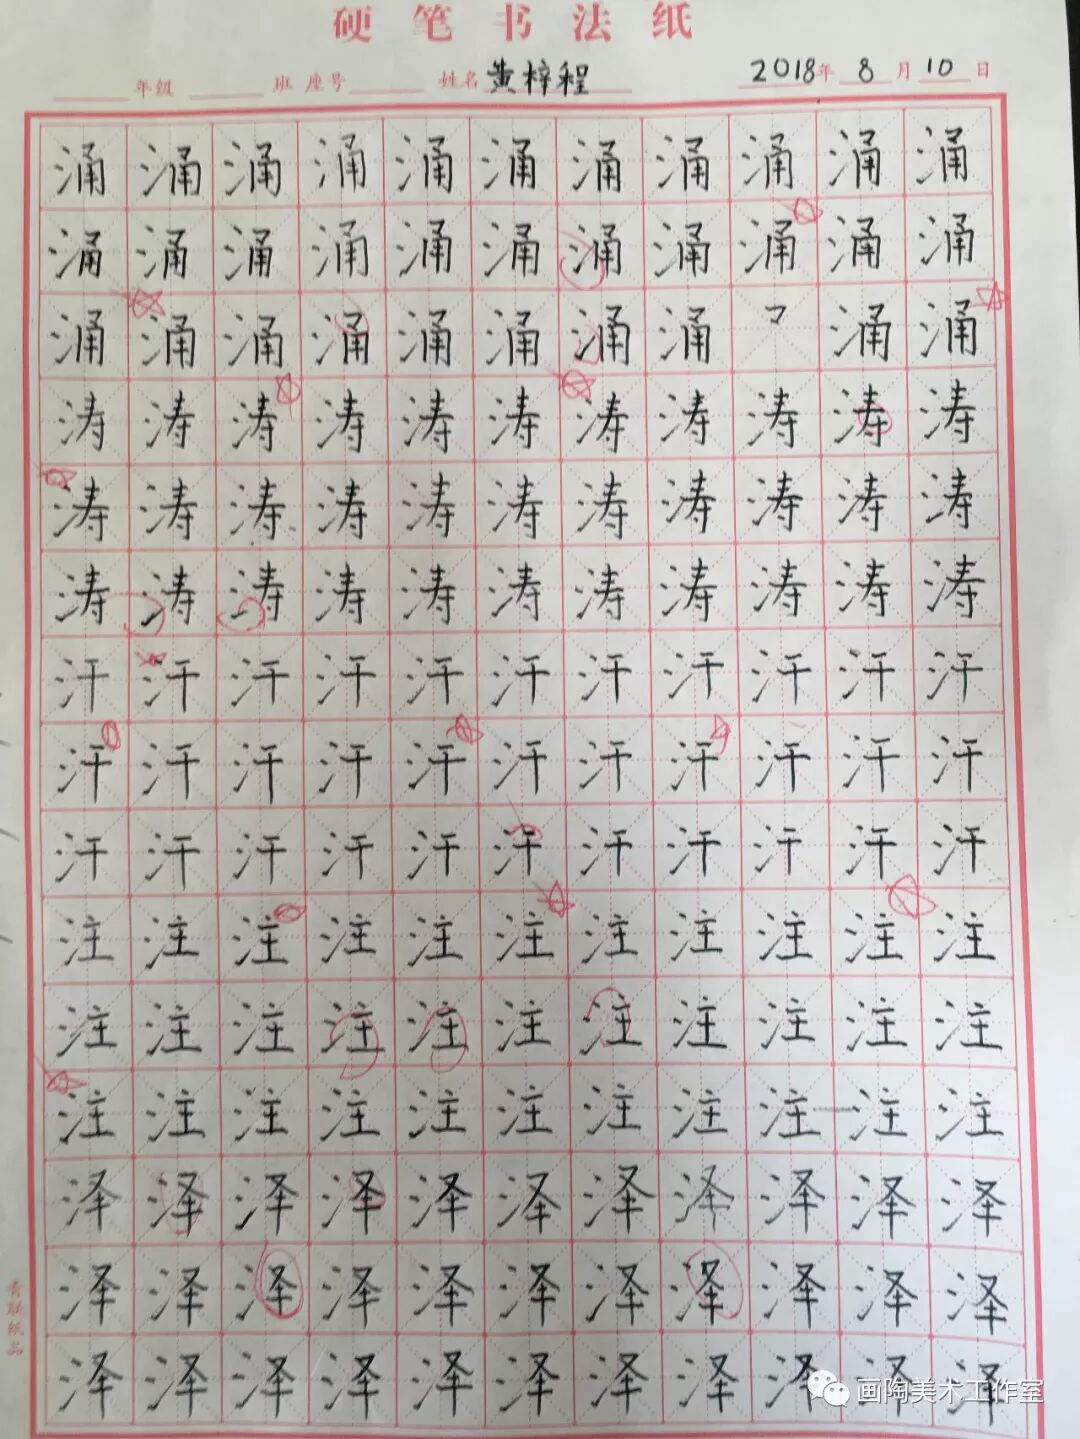 硬笔书法纸
年级 班 座号 姓名 黄梓程 2018年 8月 10日
涌涌涌涌涌涌涌涌涌涌涌
涌涌涌涌涌涌涌涌涌涌涌
涌涌涌涌涌涌涌涌 涌涌
涛涛涛涛涛涛涛涛涛涛涛
涛涛涛涛涛涛涛涛涛涛涛
涛涛涛涛涛涛涛涛涛涛涛
汗汗汗汗汗汗汗汗汗汗汗
汗汗汗汗汗汗汗汗汗汗汗
汗汗汗汗汗汗汗汗汗汗汗
注注注注注注注注注注注
注注注注注注注注注注注
注注注注注注注注注注注
泽泽泽泽泽泽泽泽泽泽泽
泽泽泽泽泽泽泽泽泽泽泽
泽泽泽泽泽泽泽泽泽泽泽
青联纸品
画陶美术工作室